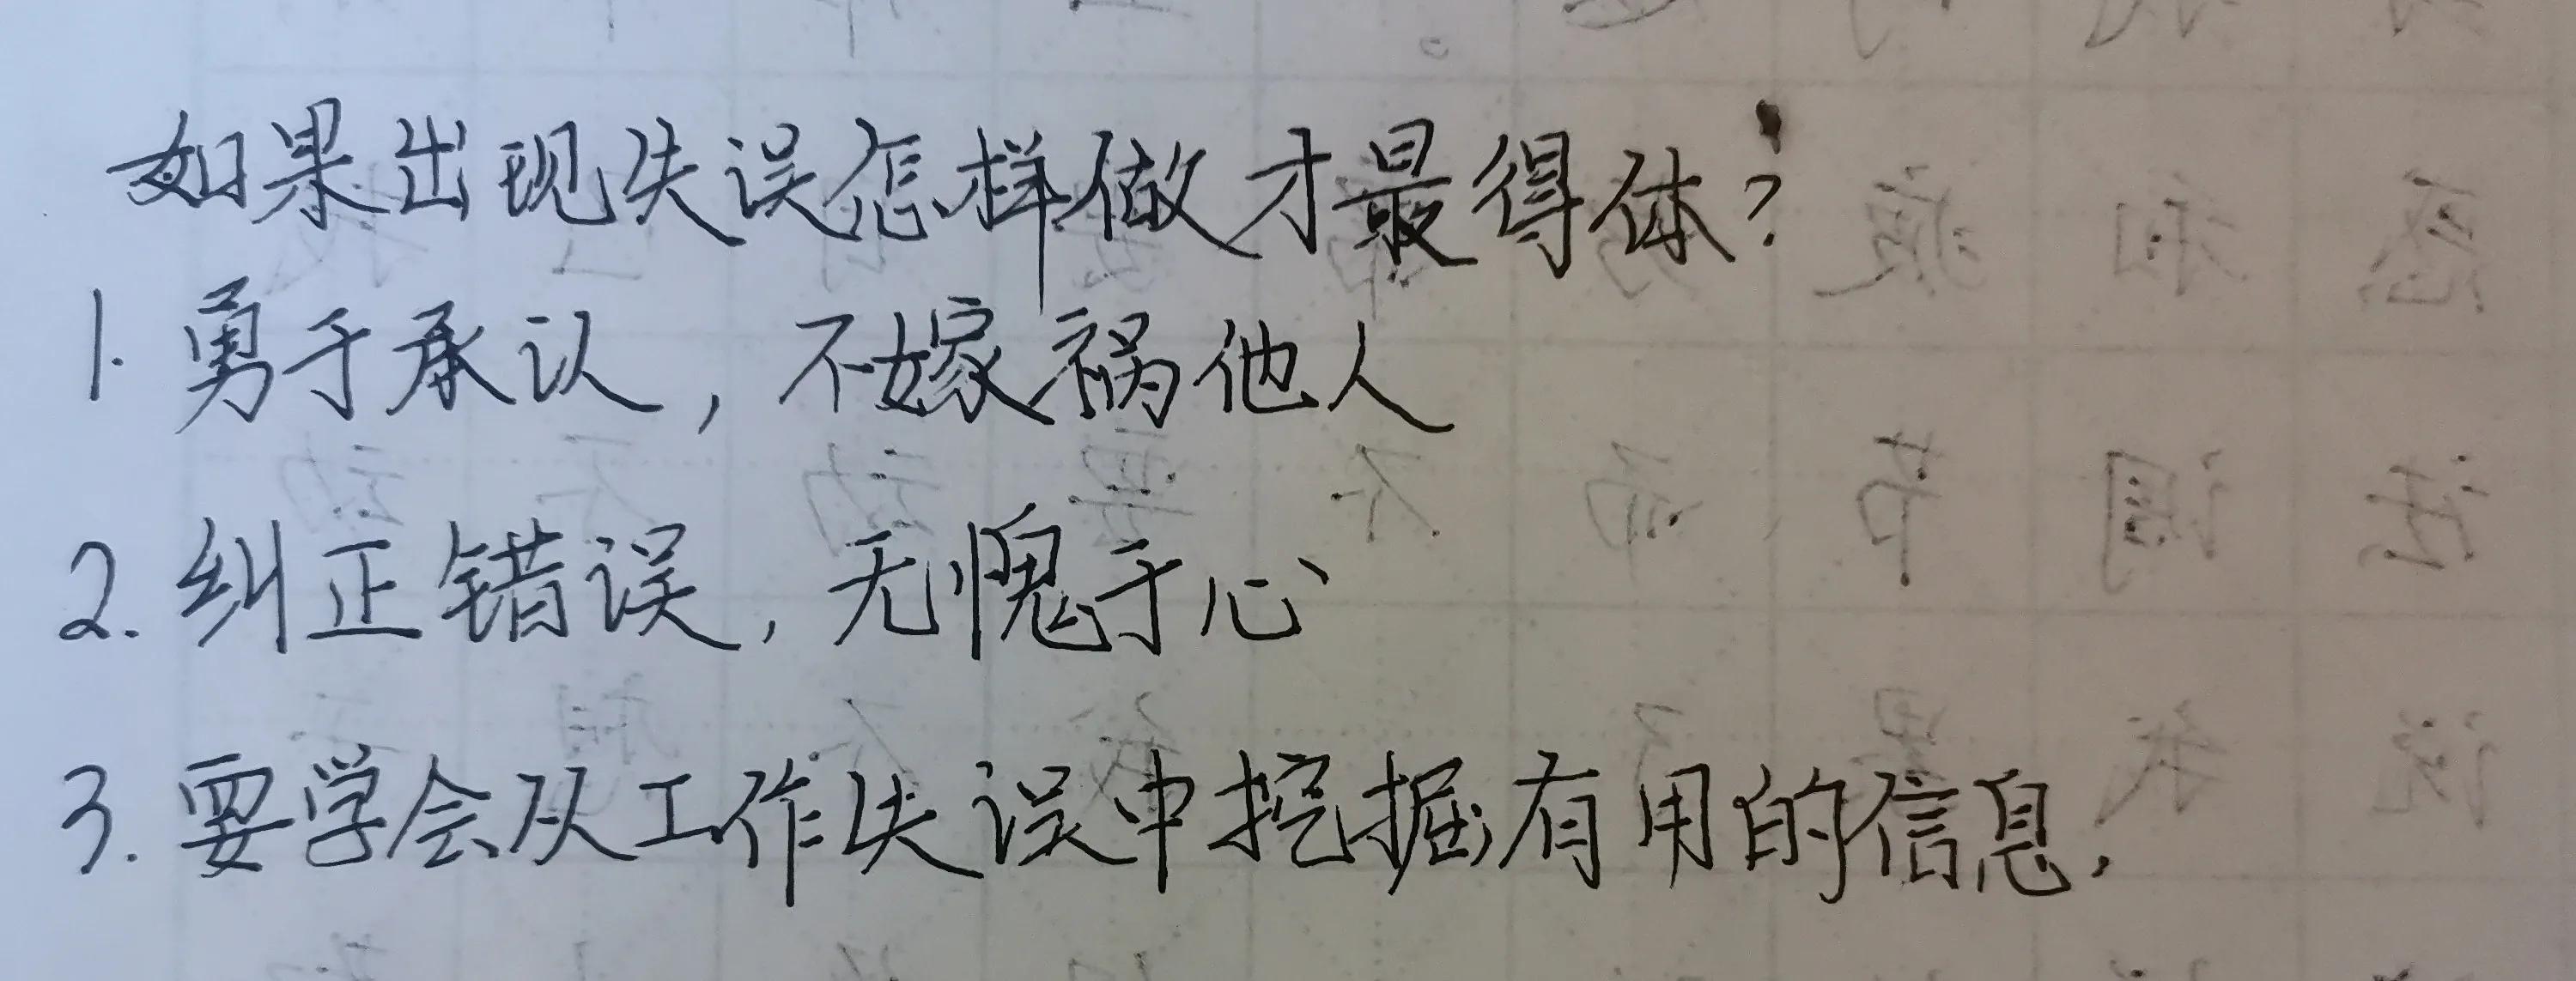 如果出现失误怎样做才最得体?
1. 勇于承认, 不嫁祸他人
2. 纠正错误, 无愧于心
3. 要学会从工作失误中挖掘有用的信息.